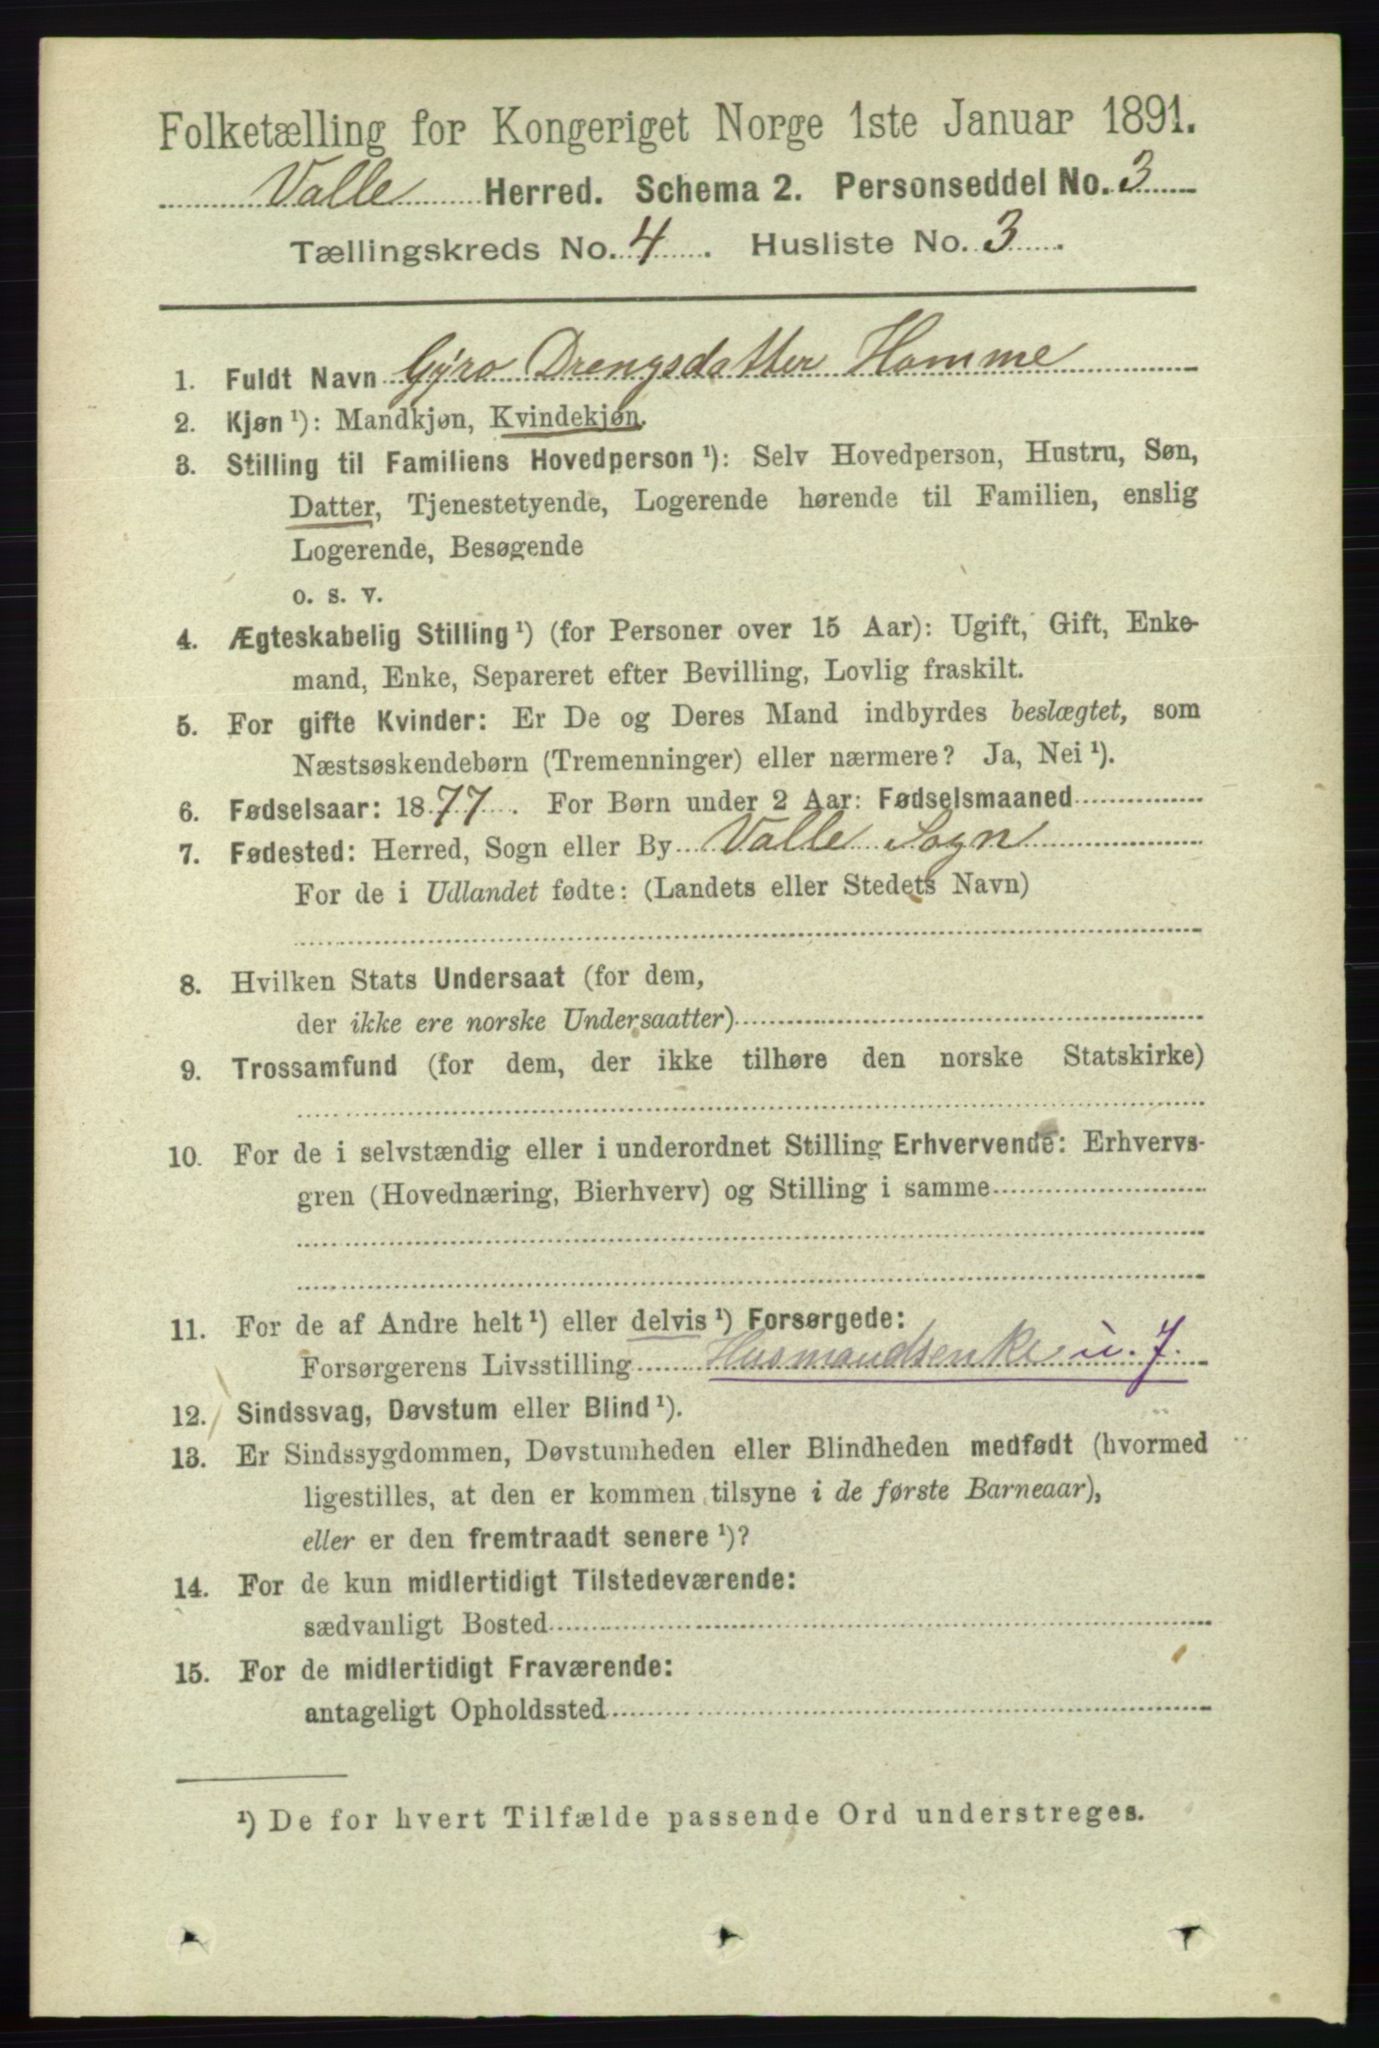 Folketælling for Kongeriget Norge 1ste Januar 1891.
Valle Herred. Schema 2. Personseddel No. 3
Tællingskreds No. 4. Husliste No. 3.
1. Fuldt Navn Gyro Drengsdatter Homme
2. Kjøn ¹): Mandkjøn, Kvindekjøn.
3. Stilling til Familiens Hovedperson ¹): Selv Hovedperson, Hustru, Søn,
Datter, Tjenestetyende, Logerende hørende til Familien, enslig
Logerende, Besøgende
o. s. v.
4. Ægteskabelig Stilling ¹) (for Personer over 15 Aar): Ugift, Gift, Enke-
mand, Enke, Separeret efter Bevilling, Lovlig fraskilt.
5. For gifte Kvinder: Er De og Deres Mand indbyrdes beslægtet, som
Næstsøskendebørn (Tremenninger) eller nærmere? Ja, Nei ¹).
6. Fødselsaar: 1877. For Børn under 2 Aar: Fødselsmaaned
7. Fødested: Herred, Sogn eller By Valle Sogn
For de i Udlandet fødte: (Landets eller Stedets Navn)
8. Hvilken Stats Undersaat (for dem,
der ikke ere norske Undersaatter)
9. Trossamfund (for dem, der ikke tilhøre den norske Statskirke)
10. For de i selvstændig eller i underordnet Stilling Erhvervende: Erhvervs-
gren (Hovednæring, Bierhverv) og Stilling i samme
11. For de af Andre helt ¹) eller delvis ¹) Forsørgede:
Forsørgerens Livsstilling Husmandsenke u. J.
12. Sindssvag, Døvstum eller Blind ¹).
13. Er Sindssygdommen, Døvstumheden eller Blindheden medfødt (hvormed
ligestilles, at den er kommen tilsyne i de første Barneaar),
eller er den fremtraadt senere ¹)?
14. For de kun midlertidigt Tilstedeværende:
sædvanligt Bosted
15. For de midlertidigt Fraværende:
antageligt Opholdssted
¹) De for hvert Tilfælde passende Ord understreges.